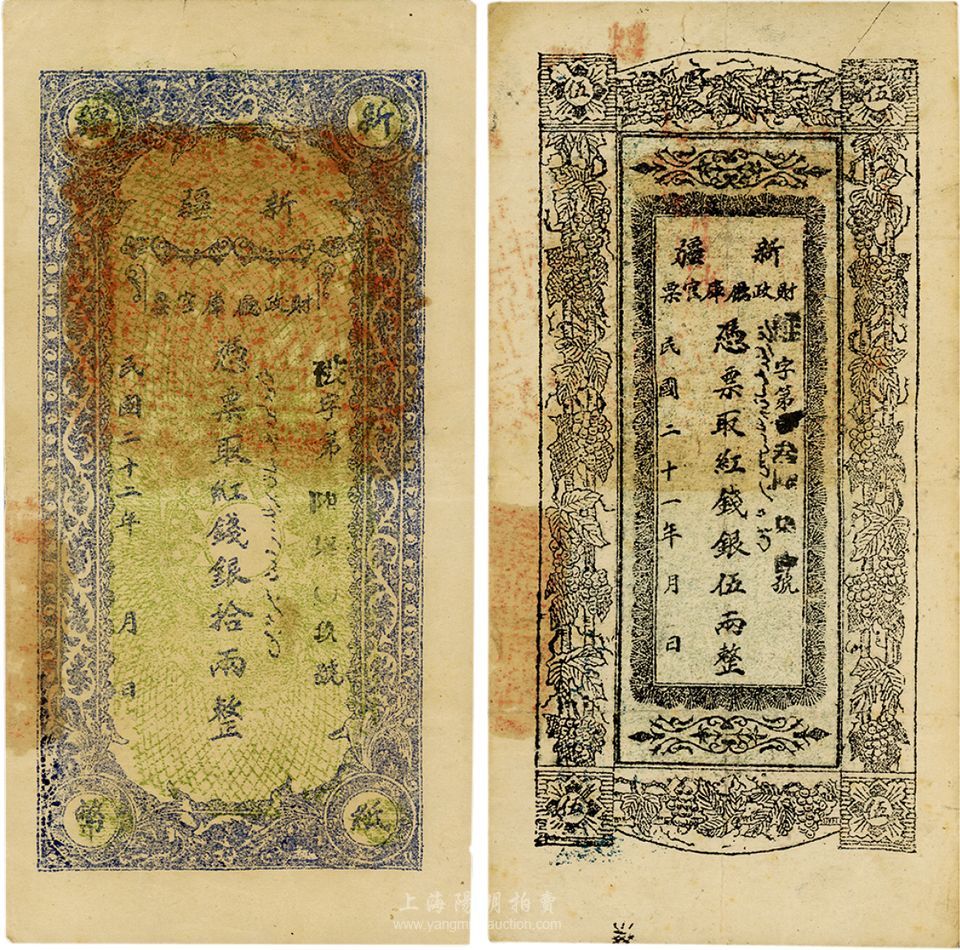 新疆
新疆
財政廳庫官票
憑票取紅錢銀拾兩整
字第
玖號
民國二十二年 月 日
幣紙
伍 伍
新疆
財政廳庫官票
字第
號
憑票取紅錢銀伍兩整
民國二十一年 月 日
伍 伍
上海陽明拍賣
www.yangmingauction.com